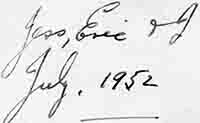 Jess, Eric & J
July, 1952